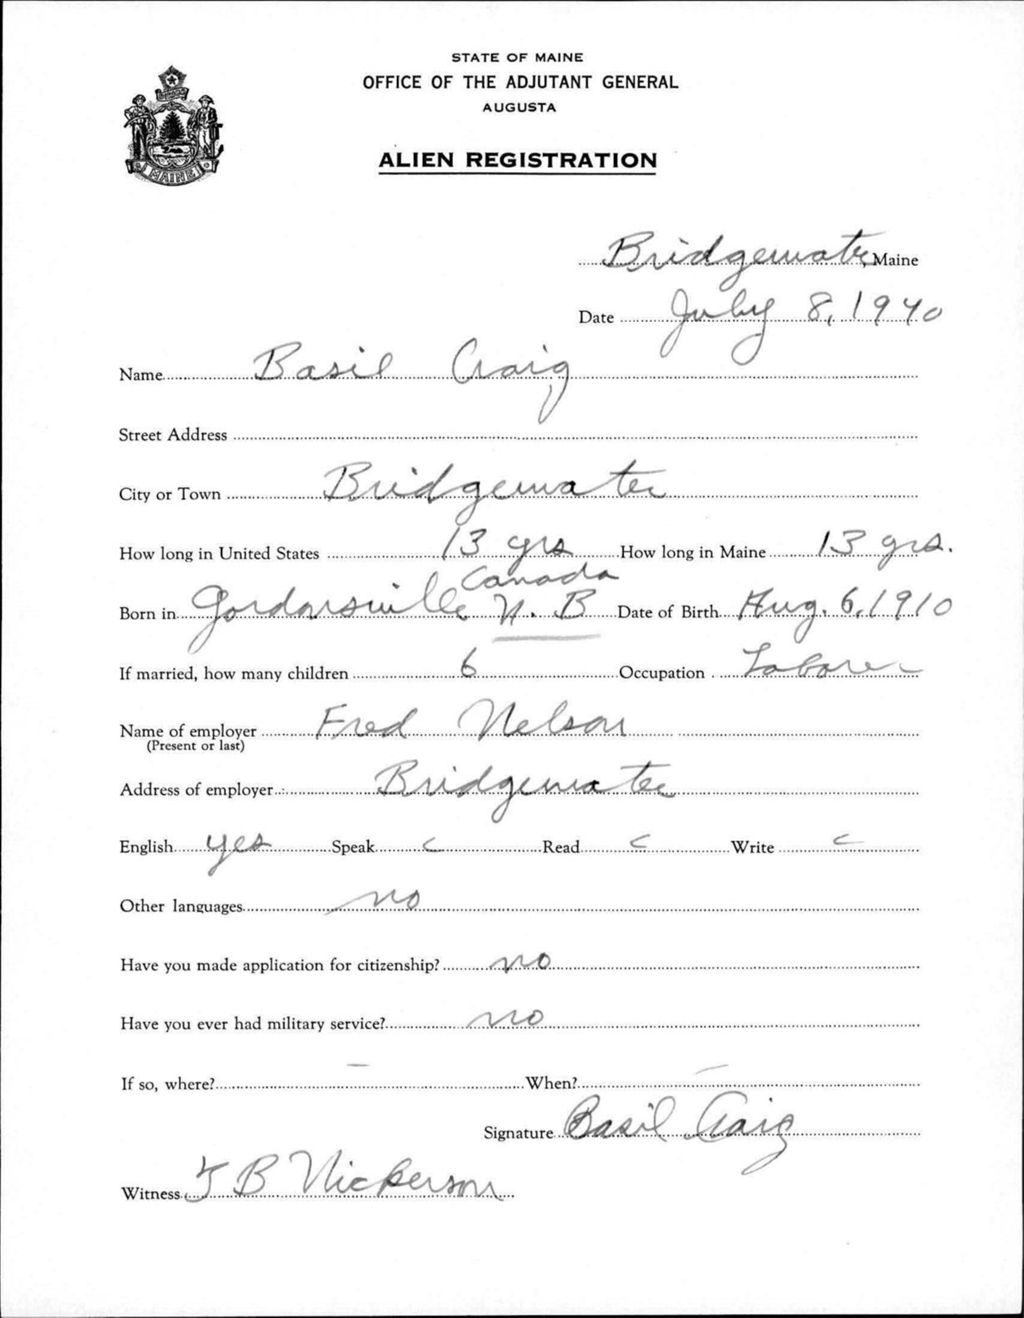 STATE OF MAINE
OFFICE OF THE ADJUTANT GENERAL
AUGUSTA
ALIEN REGISTRATION
MAINE
Bridgewater, Maine
Date July 8, 1940
Name Basil Craig
Street Address
City or Town Bridgewater
How long in United States 13 yrs How long in Maine 13 yrs.
Canada
Born in Gordonsville N. B Date of Birth Aug. 6, 1910
If married, how many children 6 Occupation Laborer
Name of employer Fred Nelson
(Present or last)
Address of employer Bridgewater
English yes Speak c Read c Write c
Other languages no
Have you made application for citizenship? no
Have you ever had military service? no
If so, where? — When? —
Signature Basil Craig
Witness B Nickerson